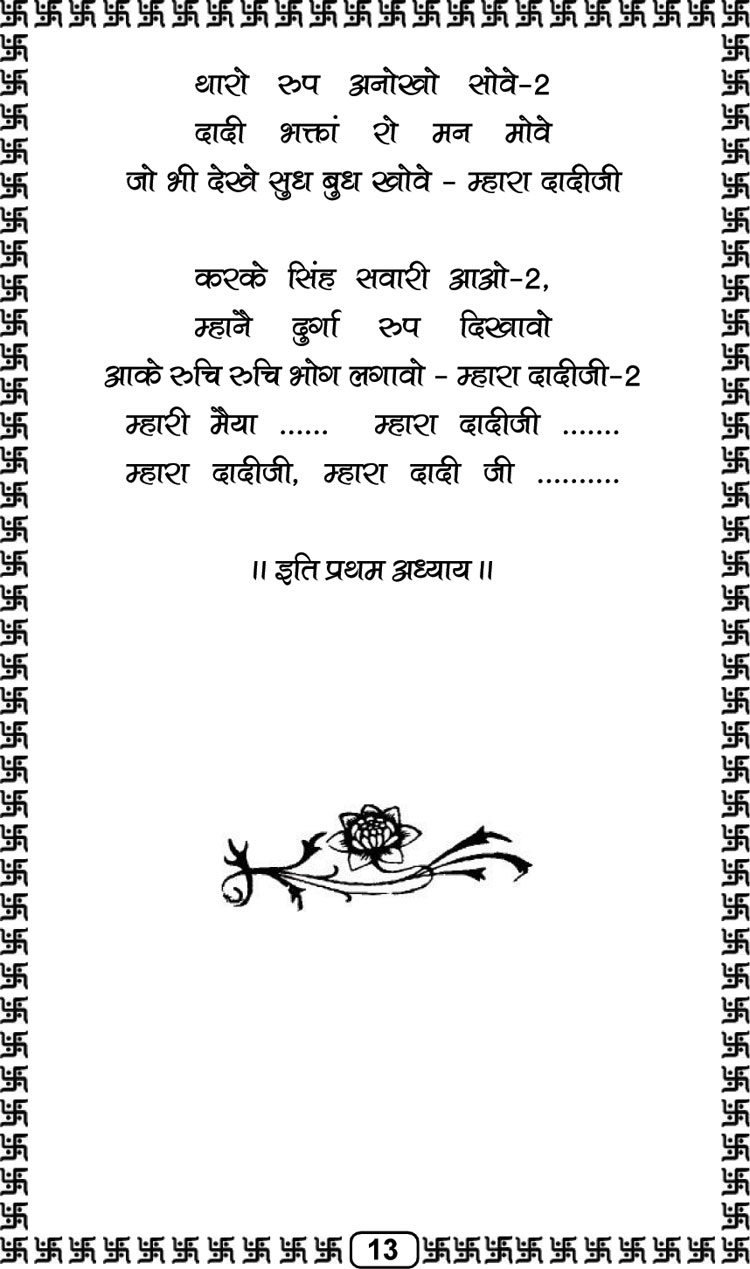 थारो रुप अनोखो सोवे-2
दादी भक्तां रो मन मोवे
जो भी देखे सुध बुध खोवे - म्हारा दादीजी
करके सिंह सवारी आओ-2,
म्हानै दुर्गा रुप दिखावो
आके रुचि रुचि भोग लगावो - म्हारा दादीजी-2
म्हारी मैया ...... म्हारा दादीजी .......
म्हारा दादीजी, म्हारा दादी जी ..........
॥ इति प्रथम अध्याय ॥
13